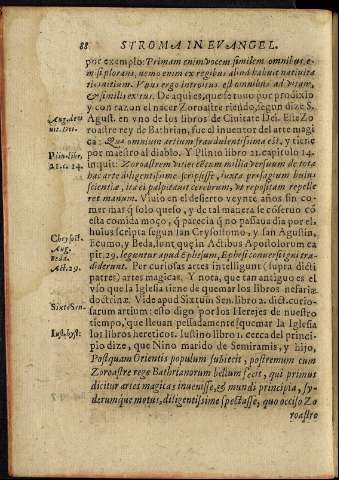 88 STROMA IN EVANGEL.
por exemplo: Primam enim vocem similem omnibus e-
misi plorans, nemo enim ex regibus aliud habuit nativita
tis initium. Vnus ergo introitus est omnibus ad vitam,
& similis exitus. De aqui es, que se tuvo por prodixio
y con razon el nacer Zoroastre riendo, segun dize S.
Aug. de ci
uit. Dei.
Agust. en vno de los libros de Ciuitate Dei. Este Zo
roastre rey de Bathrian, fue el inuentor del arte magi
ca: Quæ omnium artium fraudulentissima est, y tiene
Plin. libr.
21. c. 24.
por maestro al diablo. Y Plinio libro 21. capitulo 24.
inquit: Zoroastrem vicies centum millia versuum de tota
hac arte diligentissime scripsisse, iuxta presagium huius
scientiæ, ita ei palpitant cerebrum, vt repositam repelle
ret manum. Viuio en el desierto veynte años sin co-
mer mas q̃ solo queso, y de tal manera se cõseruò cõ
esta comida moço, q̃ parecia q̃ no passaua dia por el.
Chrysost.
Aug.
Beda.
Act. 29.
huius scripta segun san Crysostomo, y san Agustin,
Ecumo, y Beda, sunt quæ in Actibus Apostolorum ca
pit. 29. leguntur apud Ephesum, Ephesi conuersi igni tra-
diderunt. Per curiosas artes intelligunt (supra dicti
patres) artes magicas. Y nota, que tan antiguo es el
vso que la Iglesia tiene de quemar los libros nefaria
doctrinæ. Vide apud Sixtum Sen. libro 2. dict. curio-
Sixto Sen.
sarum artium: esto digo por los Herejes de nuestro
tiempo, que lleuan pessadamente s̃quemar la Iglesia
Iust. hyst:
los libros hereticos. Iustino libro 1. cerca del princi
pio dize, que Nino marido de Semiramis, y hijo,
Postquam Orientis populum subiecit, postremum cum
Zoroastre rege Bathrianorum bellum fecit, qui primus
dicitur artes magicas inuenisse, & mundi principia, sy-
derumque motus, diligentissime spectasse, quo occiso Zo
roastro